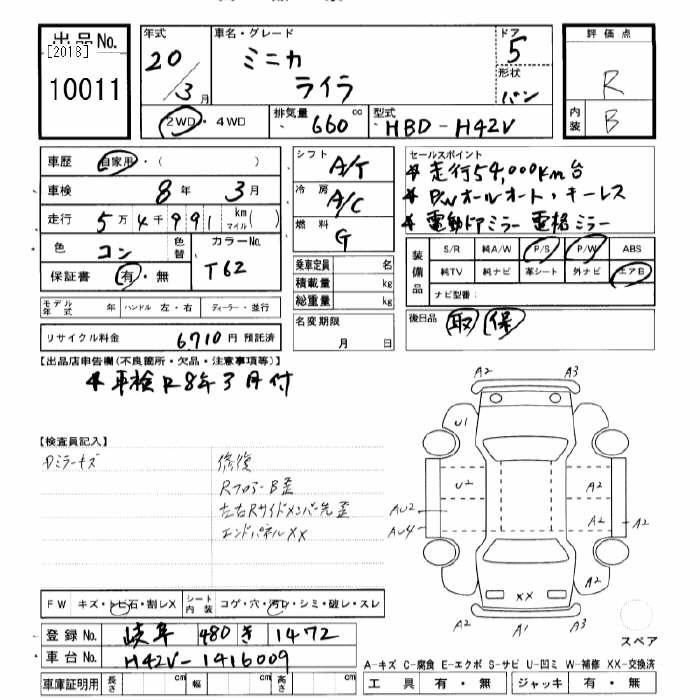 出品No.
[2013]
10011
年式
20
/3月
車名・グレード
ミニカ
ライラ
ドア
5
形状
バン
評価点
R
内装
B
2WD・4WD
排気量
660 cc
型式
HBD-H42V
車歴 自家用・( )
車検 8年 3月
走行 5万4千991 km マイル( )
色 コン 色替
カラーNo.
T62
保証書 有・無
モデル年式 年 ハンドル 左・右 ディーラー・並行
リサイクル料金 6710円 預託済
シフト A/T
冷房 A/C
燃料 G
乗車定員 名
積載量 kg
総重量 kg
名変期限
月 日
セールスポイント
* 走行54,000km台
* P/Wオールオート・キーレス
* 電動ドアミラー 電格ミラー
装備品
S/R 純A/W P/S P/W ABS
純TV 純ナビ 革シート 外ナビ エアB
ナビ型番:
後日品 取 保
【出品店申告欄(不良箇所・欠品・注意事項等)】
* 車検R8年3月付
【検査員記入】
Dミラーキズ
修復
Rフロアー B歪
左右Rサイドメンバー先歪
エンドパネルXX
A2 A3
U1
U2 A2
AU2 A2 A2
AU4
A2
XX
A2 A1 A3
スペア
FW キズ・トビ石・割レX シート内装 コゲ・穴・汚レ・シミ・破レ・スレ
登録No. 岐阜 480 き 1472
車台No. H42V-1416009
車庫証明用 長さ cm 幅 cm 高さ cm
A-キズ C-腐食 E-エクボ S-サビ U-凹ミ W-補修 XX-交換済
工具 有・無 ジャッキ 有・無